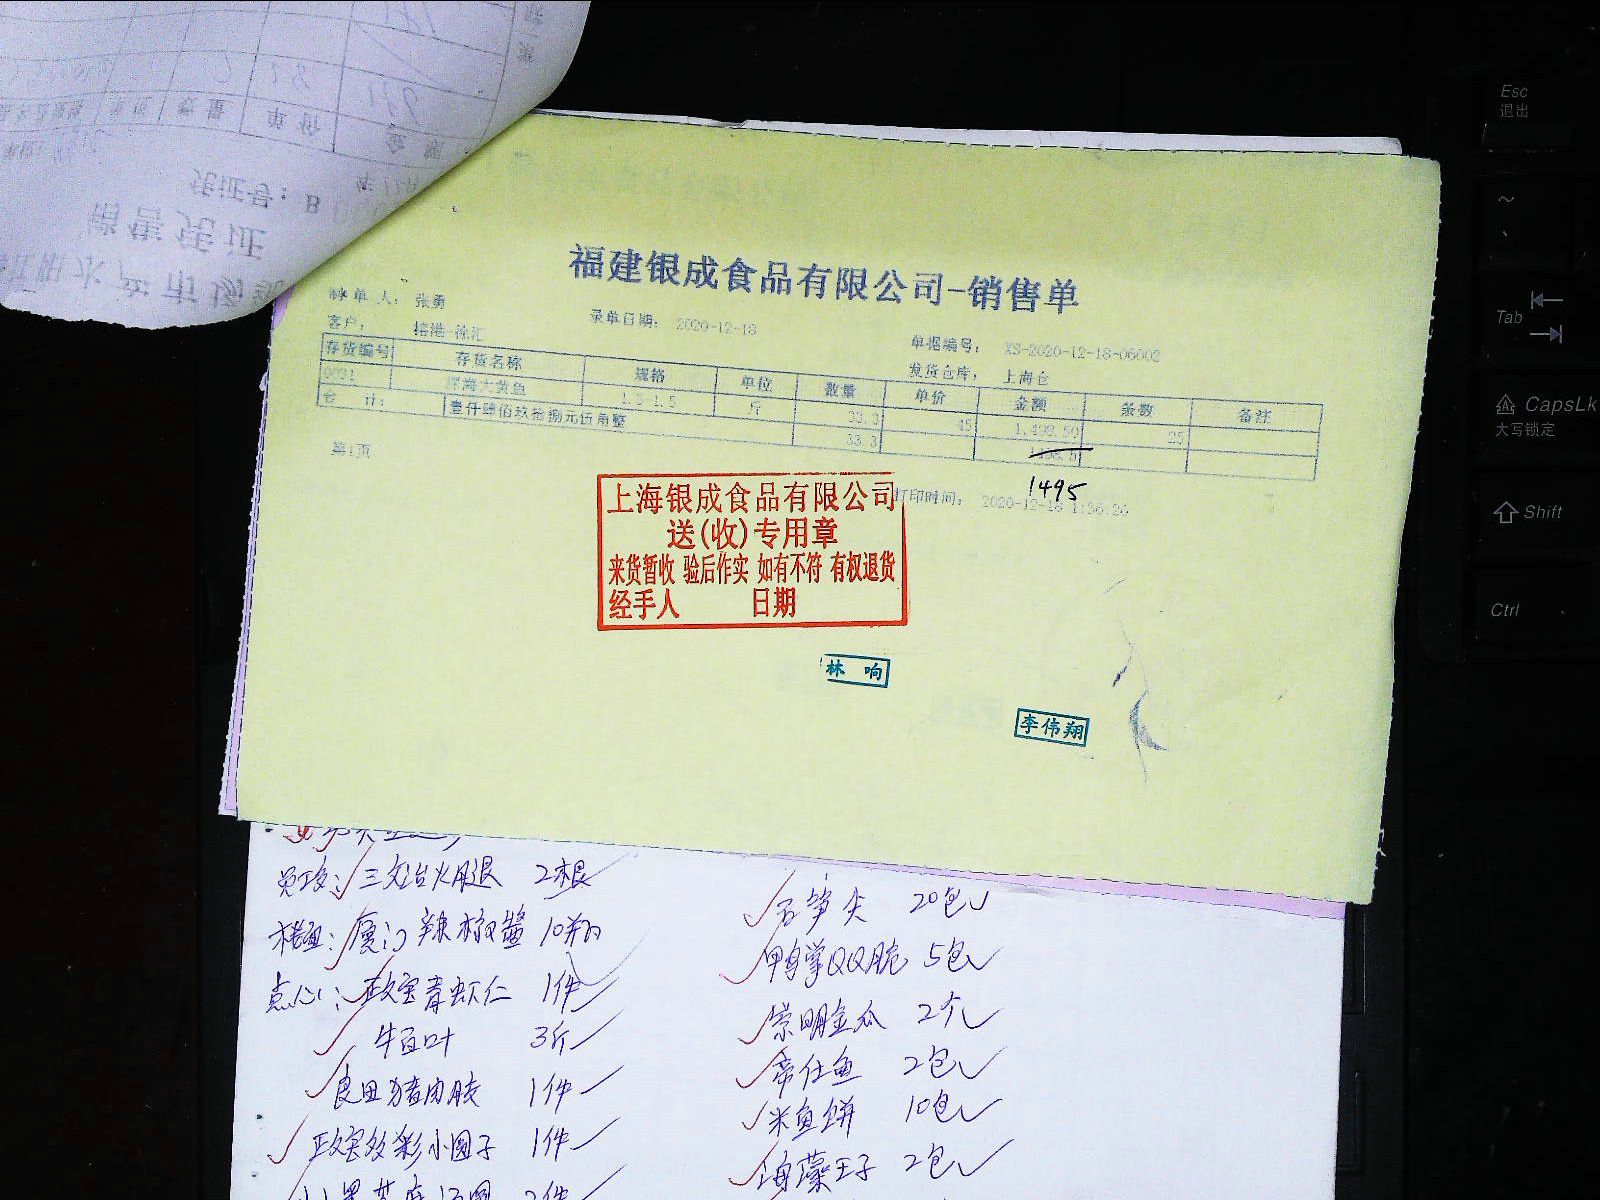 销售凭证
凭证号：B
福建银成食品有限公司-销售单
制单人：张勇
录单日期：2020-12-18
单据编号：XS-2020-12-18-06002
客户：
-徐汇
发货仓库：上海仓
存货编号 存货名称 规格 单位 数量 单价 金额 条数 备注
0031 深海大黄鱼 1.3-1.5 斤 33.3 45 1,498.50 25
合计：壹仟肆佰玖拾捌元伍角整 33.3 1498.5
1495
第1页
打印时间：2020-12-18 1:36:26
上海银成食品有限公司
送(收)专用章
来货暂收 验后作实 如有不符 有权退货
经手人 日期
林响
李伟翔
三文治火腿 2根
厦门辣椒酱 10瓶
点心：政宝青虾仁 1件
牛百叶 3斤
良田猪肉胶 1件
政宝炫彩小圆子 1件
石笋尖 20包
鸭掌QQ脆 5包
崇明金瓜 2个
帝仕鱼 2包
米鱼饼 10包
海藻王子 2包
Esc
退出
~
Tab
CapsLk
大写锁定
Shift
Ctrl